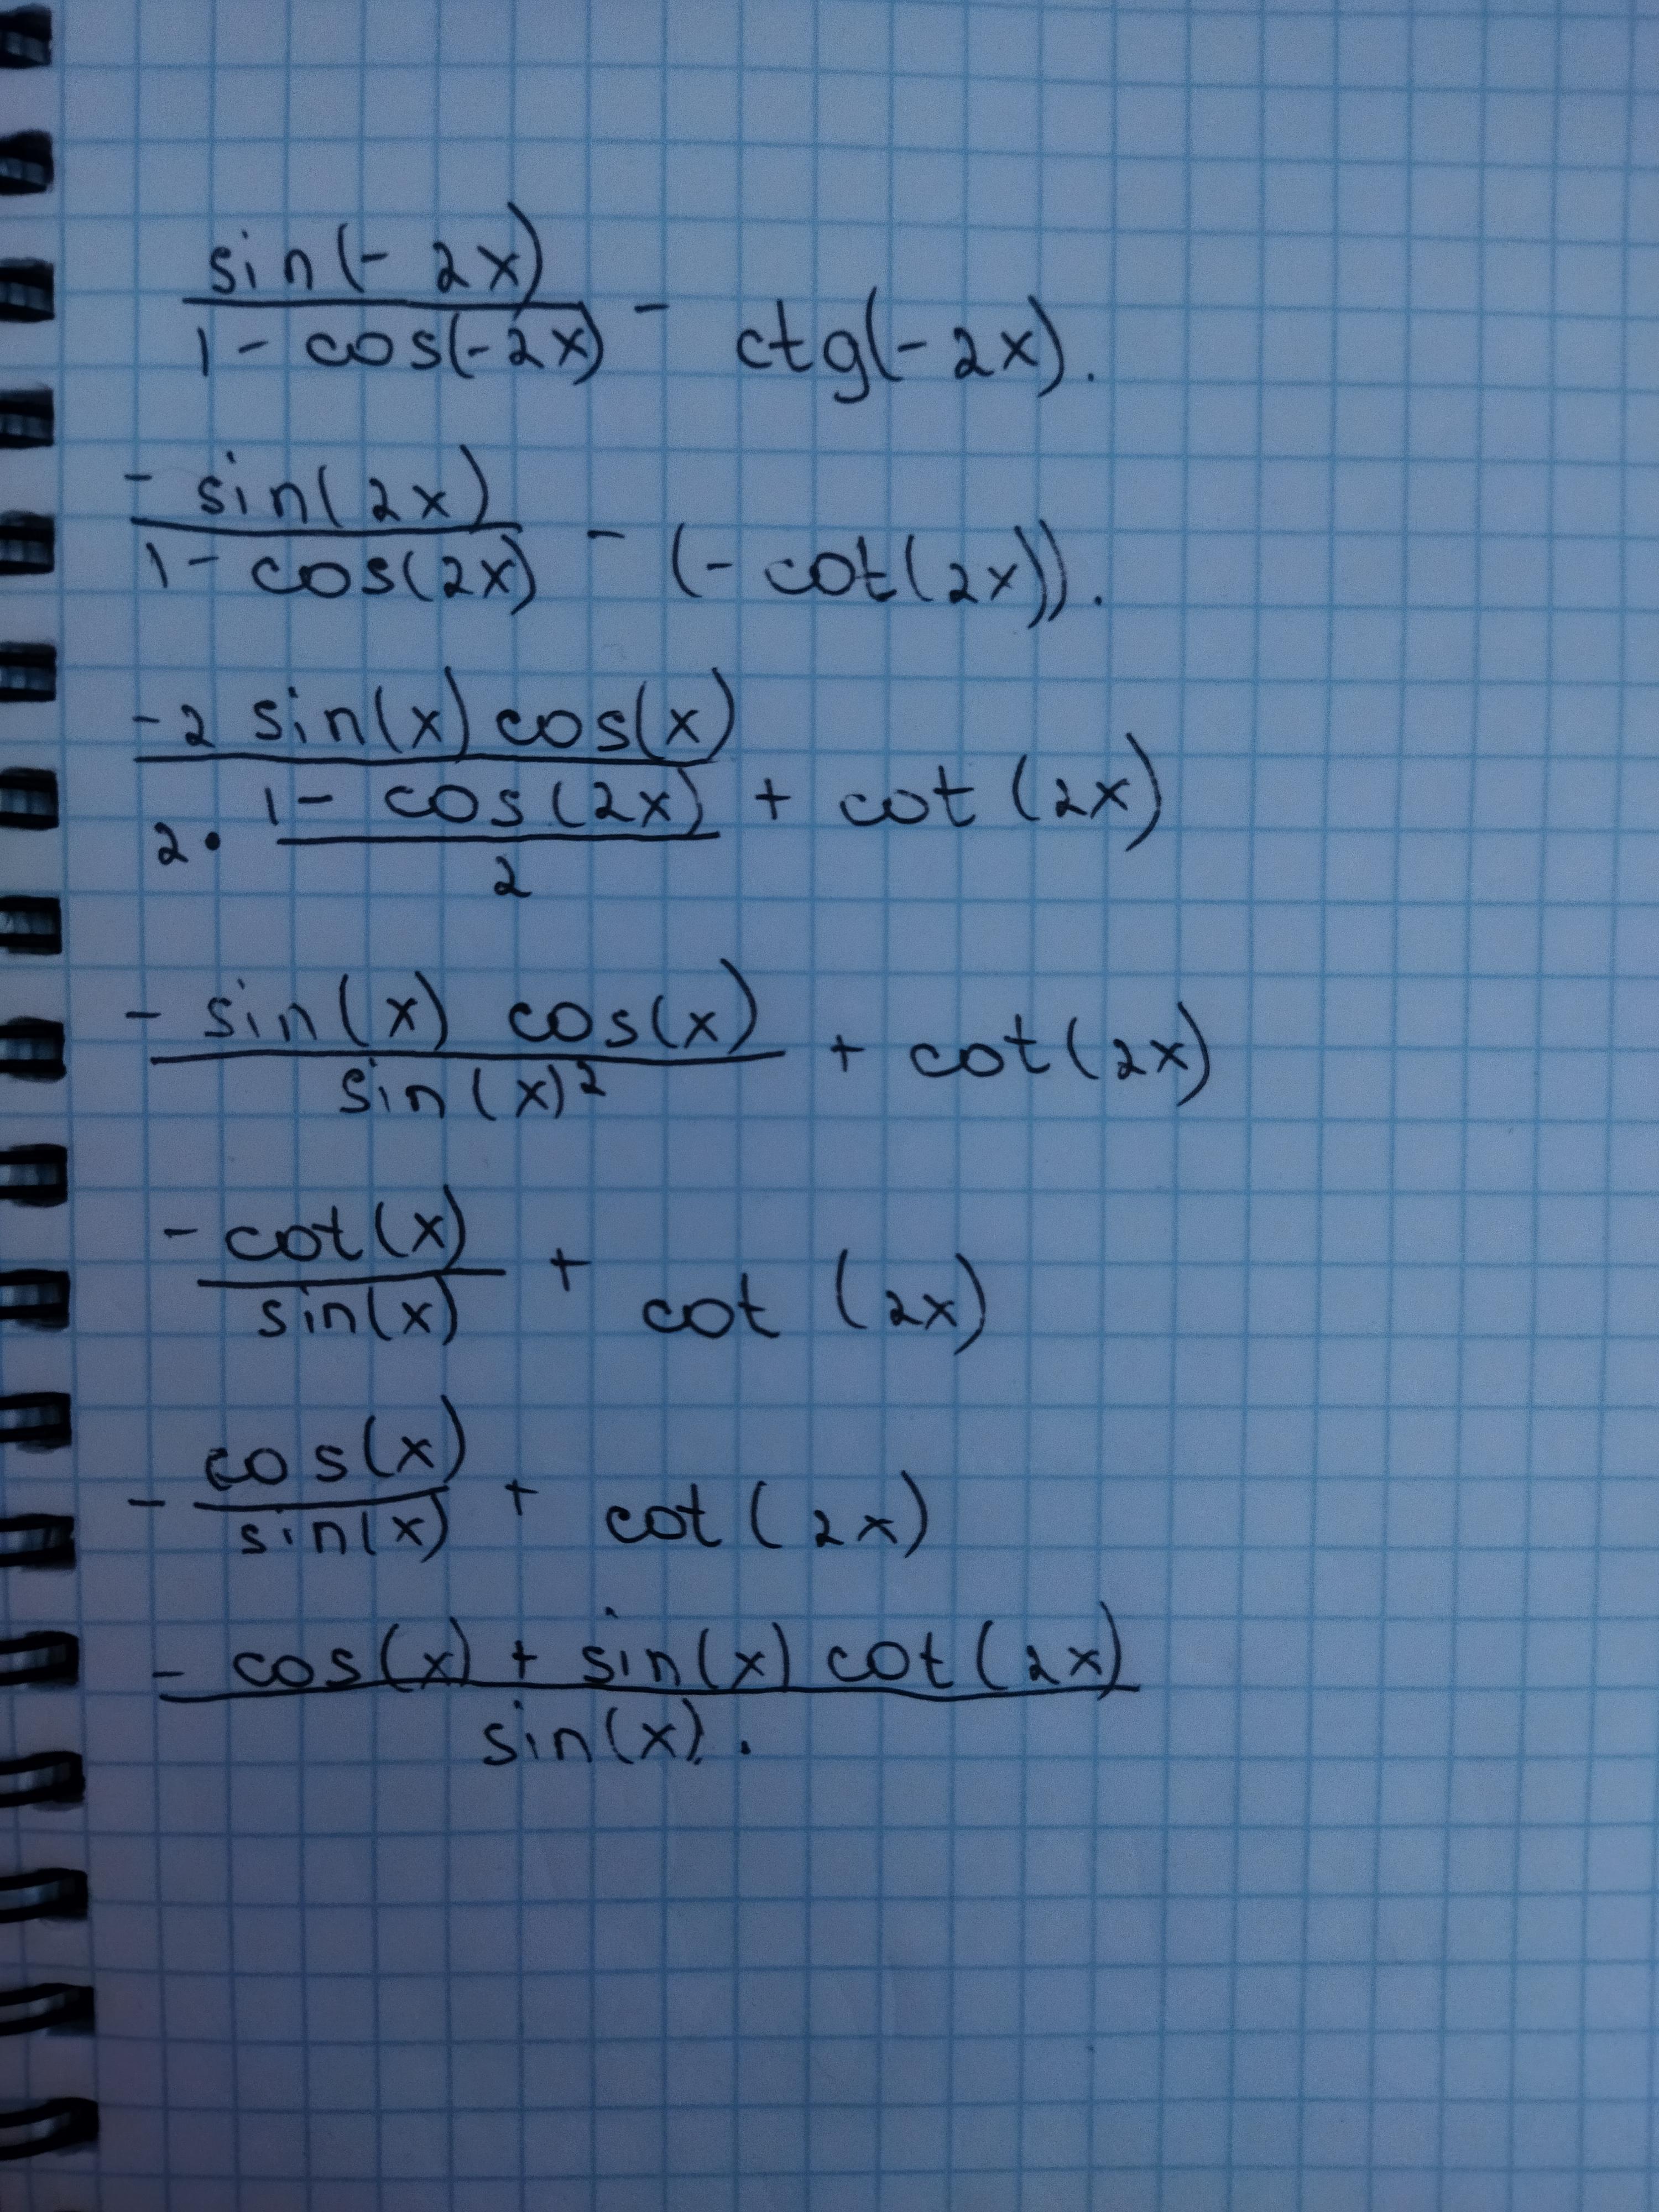 sin(- 2x) / 1 - cos(-2x) - ctg(-2x).
- sin(2x) / 1 - cos(2x) - (- cot(2x)).
-2 sin(x) cos(x) / 2 · 1 - cos(2x) / 2 + cot (2x)
- sin(x) cos(x) / sin(x)² + cot(2x)
- cot(x) / sin(x) + cot (2x)
- cos(x) / sin(x) + cot(2x)
- cos(x) + sin(x) cot(2x) / sin(x).